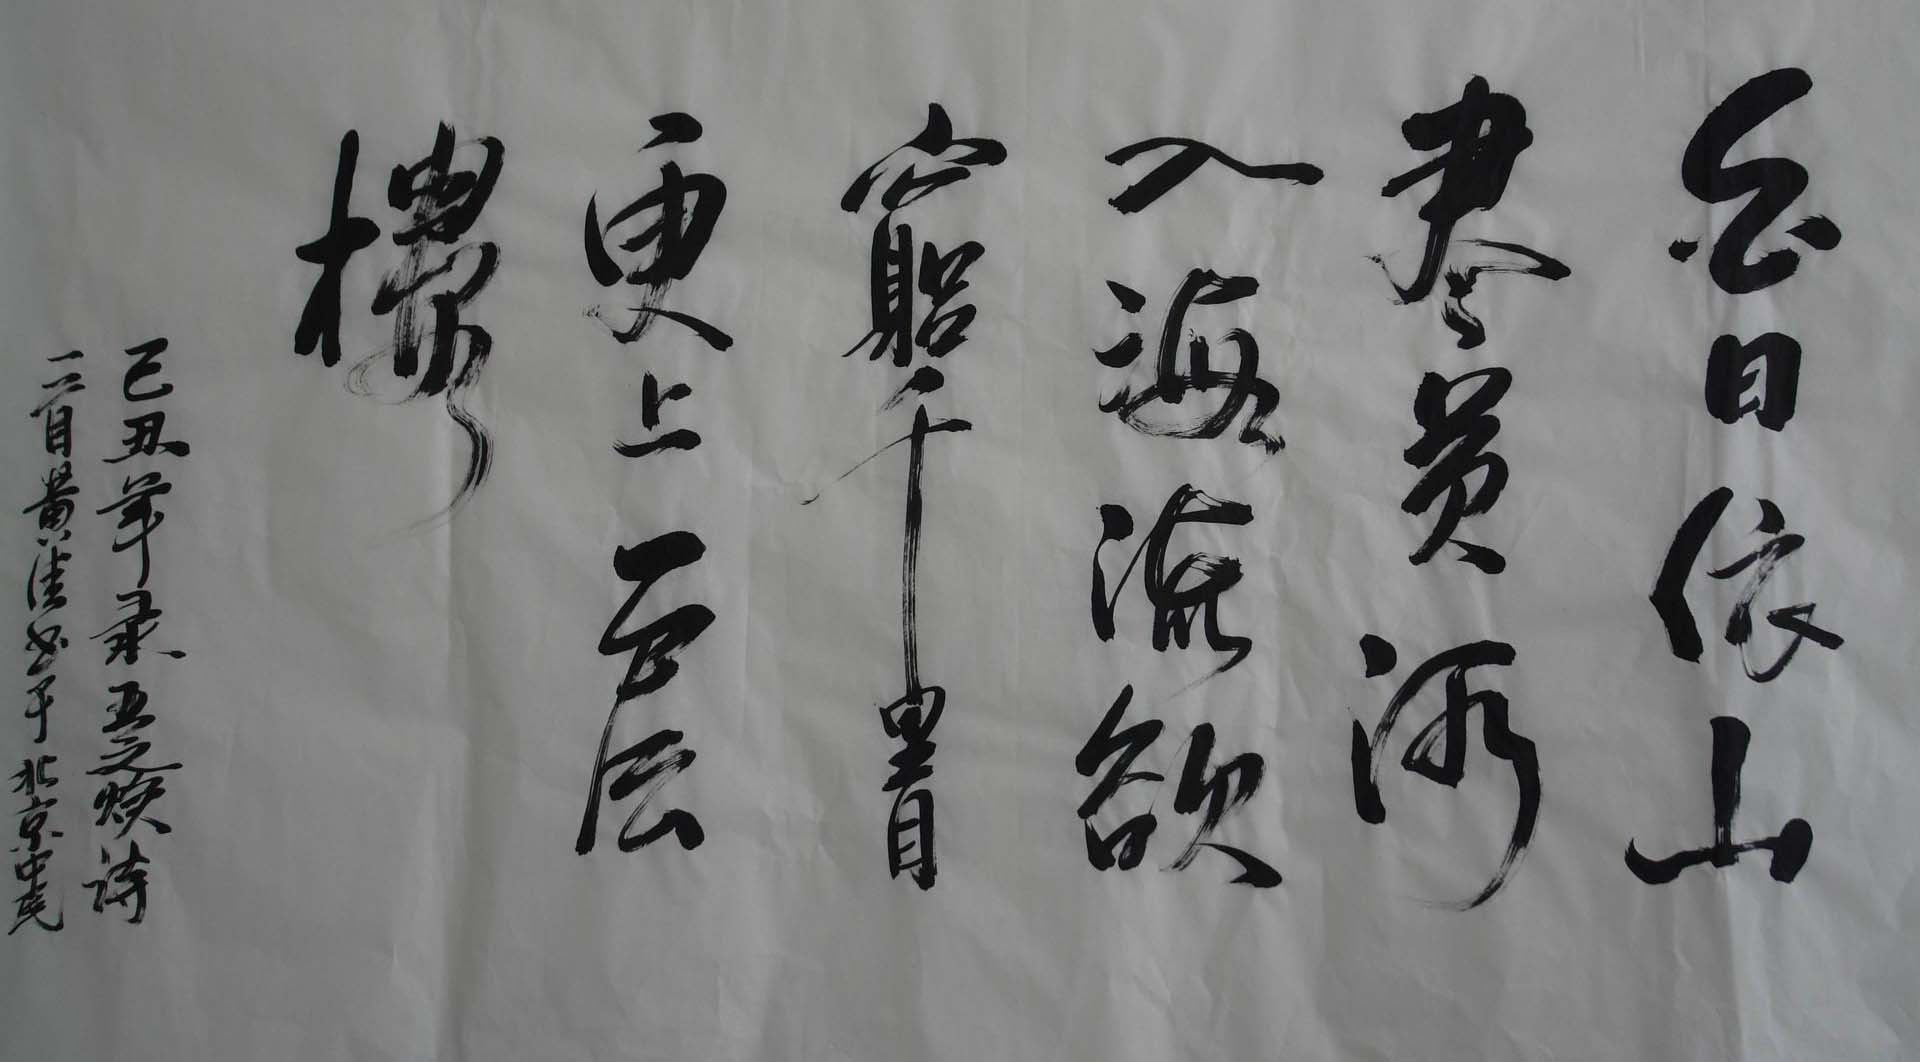 白日依山
盡黃河
入海流欲
窮千里目
更上一層
樓
己丑年录王之焕诗
二月黄佳书于北京中